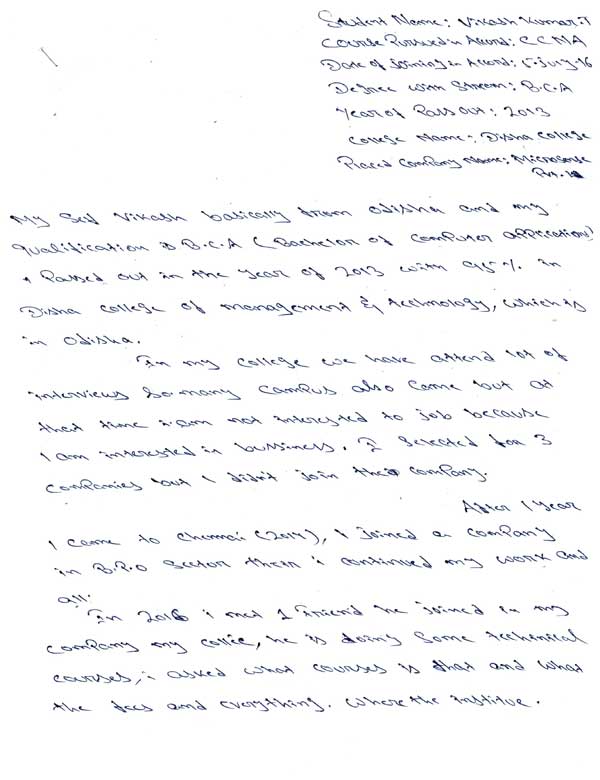 Student Name: Vikash Kumar.T
Course Pursued in Accord: CCMA
Date of Joining in Accord: 5-July-16
Degree with Stream: B.C.A
Year of Pass Out: 2013
College Name: Disha College
Placed Company Name: Microsense
Pvt. ltd
My Self Vikash basically from odisha and my
Qualification is B.C.A (Bachelor of Computer Applications)
I Passed out in the year of 2013 with 95% in
Disha college of management & technology, which is
in Odisha.
In my college we have attend lot of
interviews so many campus also come but at
that time i am not interested to job because
I am interested in bussiness. I Selected for 3
Companies but I didn't join the company.
After 1 year
I came to Chennai (2014), I joined a company
in B.P.O Sector then i continued my work and
all.
In 2016 i met 1 friend he joined in my
company my collie, he is doing Some techenical
courses, i asked what courses is that and what
the fees and everything. Where the institue.